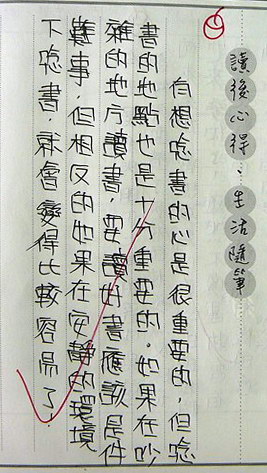 讀後心得：生活隨筆
有想唸書的心是很重要的，但唸
書的地點也是十分重要的。如果在吵
雜的地方讀書，要讀好書應該是件
難事，但相反的如果在安靜的環境
下唸書，就會變得比較容易了。